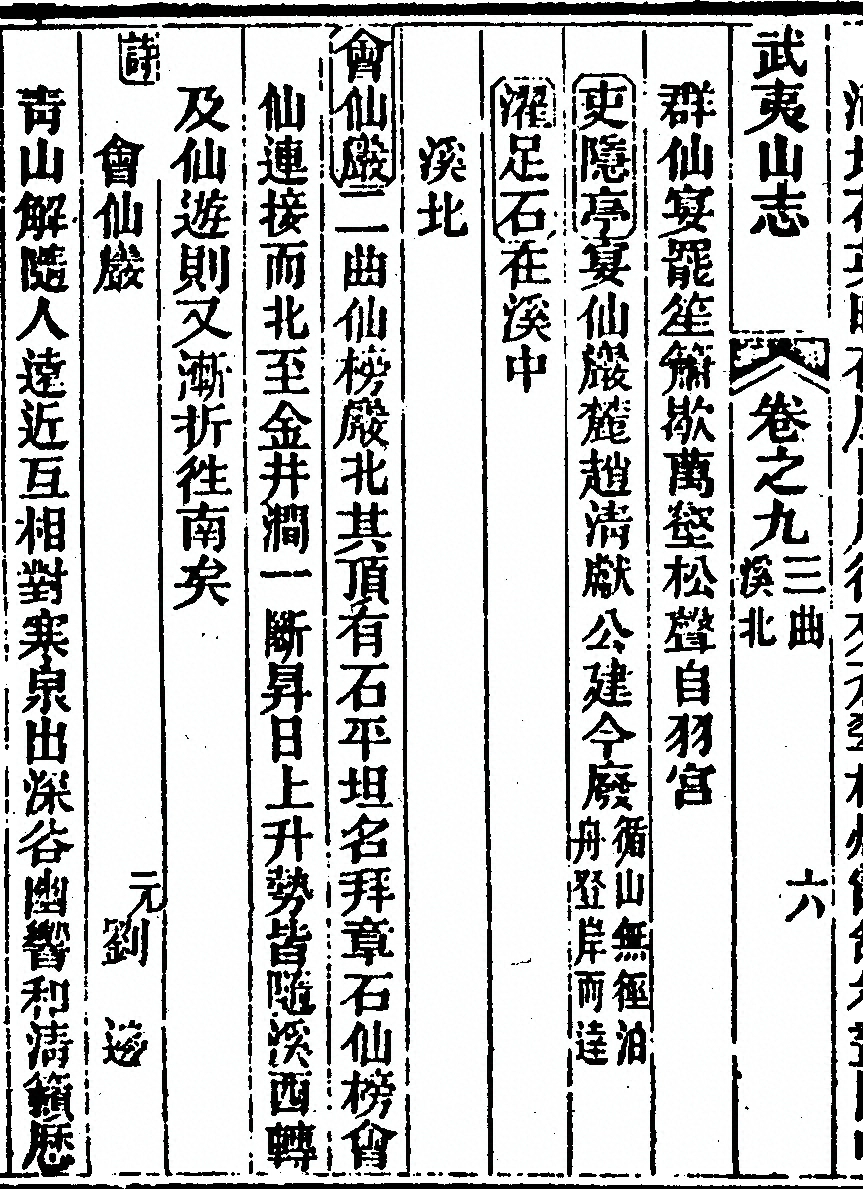 武夷山志 卷之九 三曲溪北 六
群仙宴罷笙簫歇萬壑松聲自羽宮
吏隱亭宴仙巖麓趙清獻公建今廢循山無徑泊舟登岸而達
濯足石在溪中
溪北
會仙巖二曲仙榜巖北其頂有石平坦名拜章石仙榜會
仙連接而北至金井澗一斷昇日上升勢皆隨溪西轉
及仙遊則又漸折徃南矣
詩 會仙巖 元劉
靑山解隨人遠近互相對寒泉出深谷幽響和清籟歷